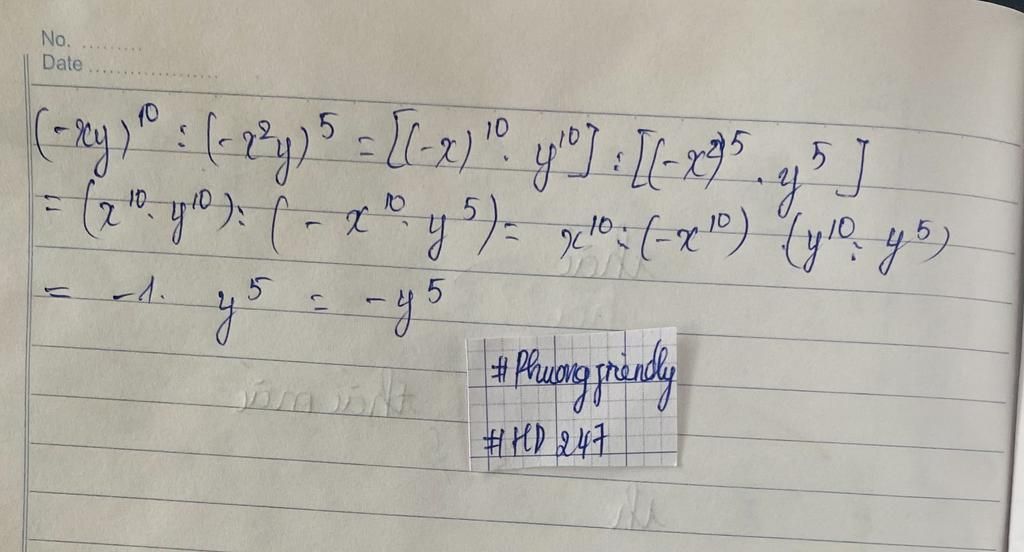 No. .........
Date ..................
(-xy)¹⁰ : (-x²y)⁵ = [(-x)¹⁰ . y¹⁰] : [(-x²)⁵ . y⁵]
= (x¹⁰ . y¹⁰) : (- x¹⁰ . y⁵) = x¹⁰ : (-x¹⁰) . (y¹⁰ : y⁵)
= -1 . y⁵ = -y⁵
#Phuongfriendly
#HD 247